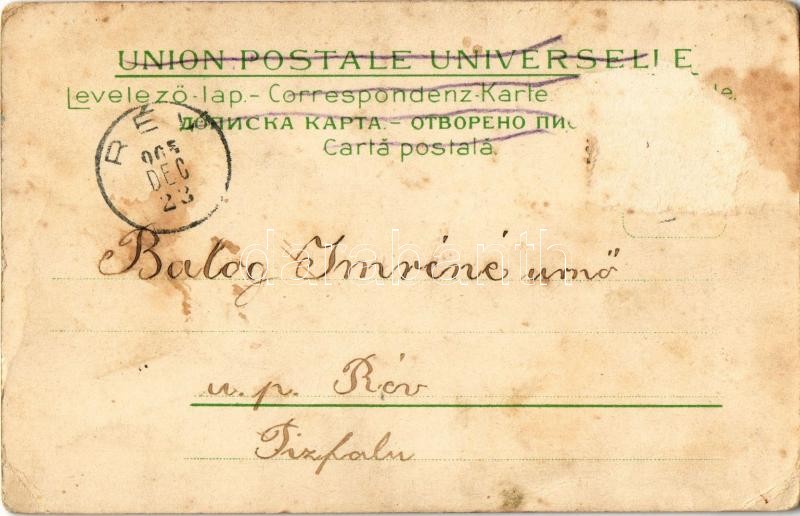 UNION POSTALE UNIVERSELLE
Levelező-lap.– Correspondenz-Karte.
ДОПИСКА КАРТА.– ОТВОРЕНО
Cartă postală
905
DEC
23
Balog Imréné urnő
darabanth
u. p. Rév
Tizfalu